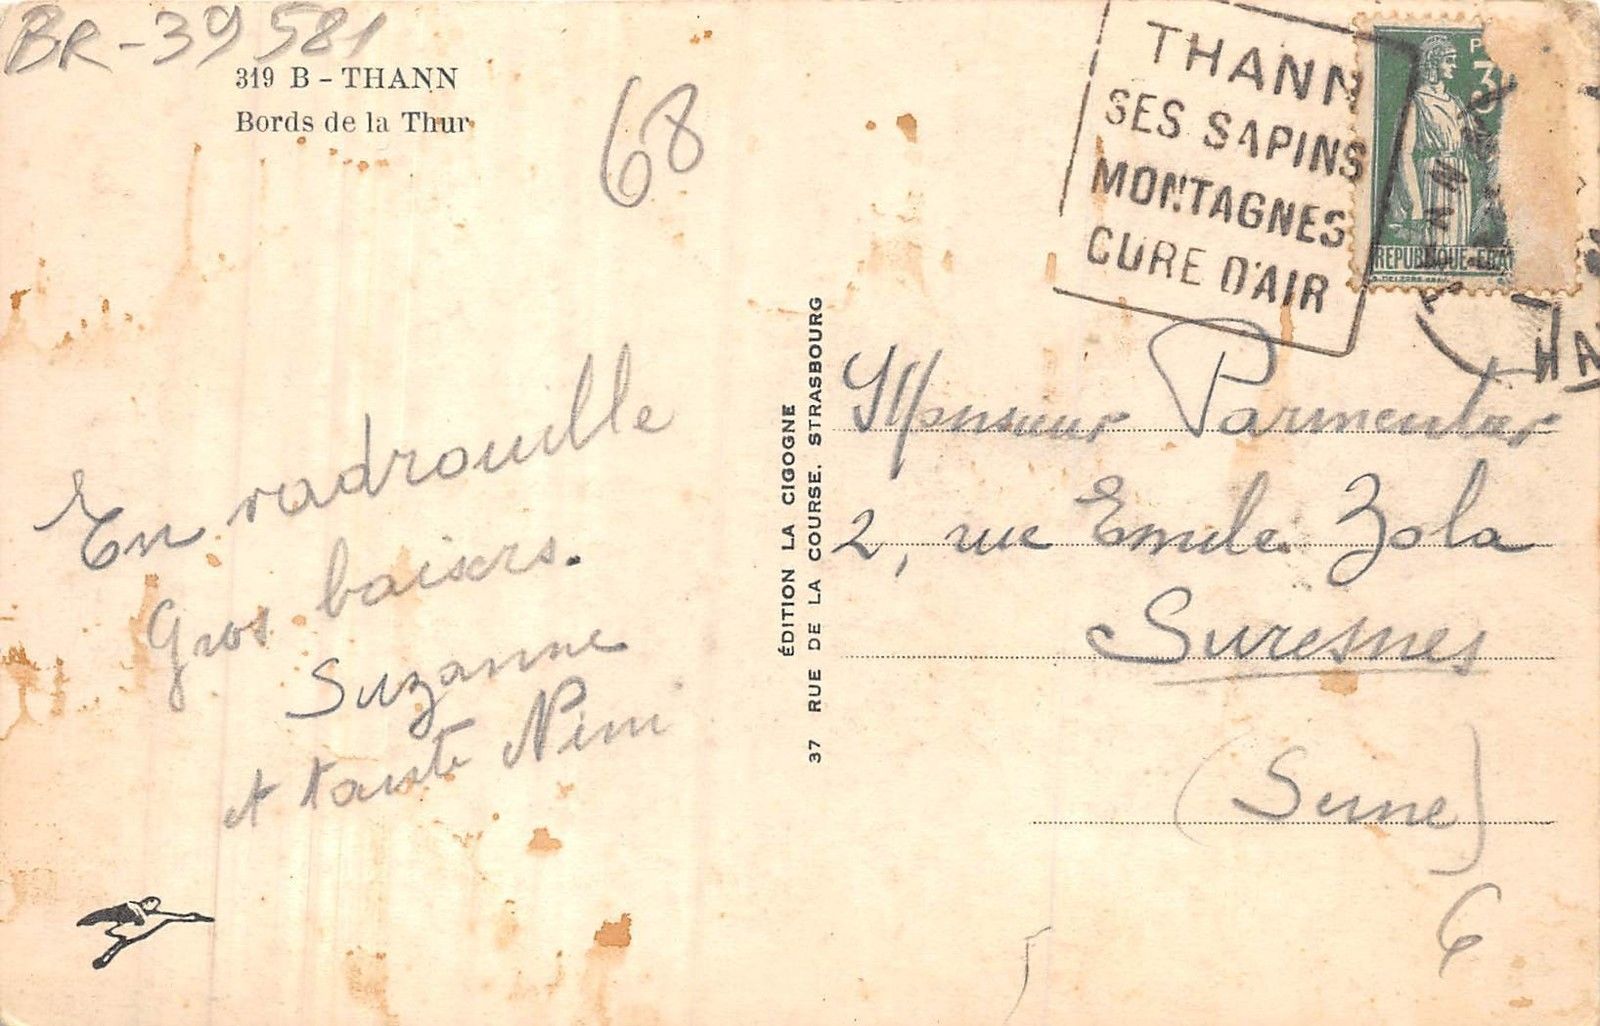 BR-39581
319 B - THANN
Bords de la Thur
68
THANN
SES SAPINS
MONTAGNES
CURE D'AIR
REPUBLIQUE
En vadrouille
Gros baisers.
Suzanne
et tante Nini
ÉDITION LA CIGOGNE
37 RUE DE LA COURSE. STRASBOURG
Monsieur Parmentier
2, rue Emile Zola
Suresnes
(Seine)
6